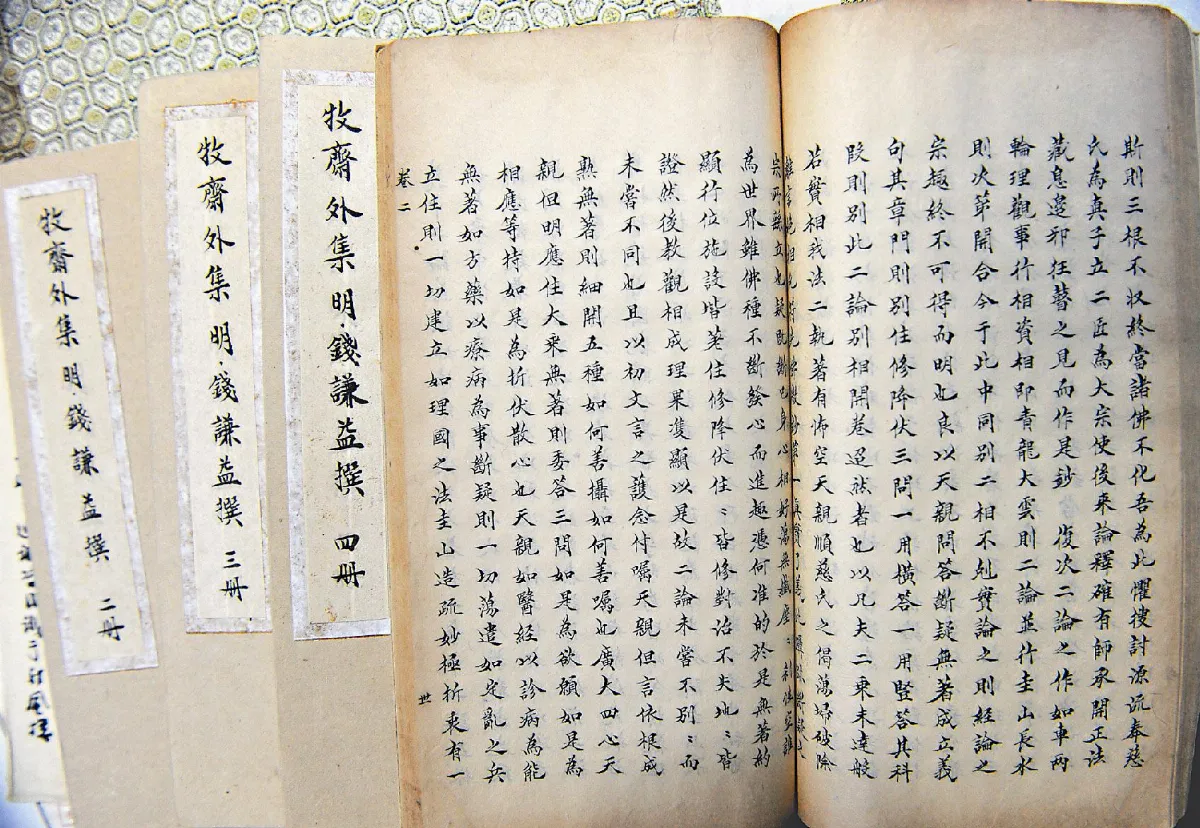 斯則三根不収終當諸佛不化吾為此懼搜討源流奉慈
氏為真子立二匠為大宗使後來論釋確有師承開正法
藏息邉邪狂瞽之見而作是鈔　復次二論之作如車兩
輪理觀事行相資相即青龍大雲則二論並行圭山長水
則次第開合今于此中同別二相不剋實論之則經論之
宗趣終不可得而明也良以天親問答斷疑無著成立義
句其章門則別住修降伏三問一用橫答一用豎答其科
段則別此二論別相開卷迢然者也以凡夫二乗未達般
若實相我法二執著有怖空天親順慈氏之偈蕩埽破除
為世界雖佛種不斷發心而進趣憑何准的於是無著約
顯行位施設皆住修降伏住〻皆修對治不失地〻皆
證然後教觀相成理果䨇顯以是故二論未嘗不別〻而
未嘗不同也且以初文言之護念付囑天親但言依根成
熟無著則細開五種如何善攝如何善囑也廣大四心天
親但明應住大乘無著則委答三問如是為欲願如是為
相應等持如是為折伏散心也天親如醫經以診病為能
無著如方藥以療病為事斷疑則一切蕩遣如定亂之兵
立住則一切建立如理國之法圭山造疏妙極折衷有一
卷二 卅
牧齋外集 明·錢謙益撰 四冊
牧齋外集 明·錢謙益撰 三冊
牧齋外集 明·錢謙益撰 二冊